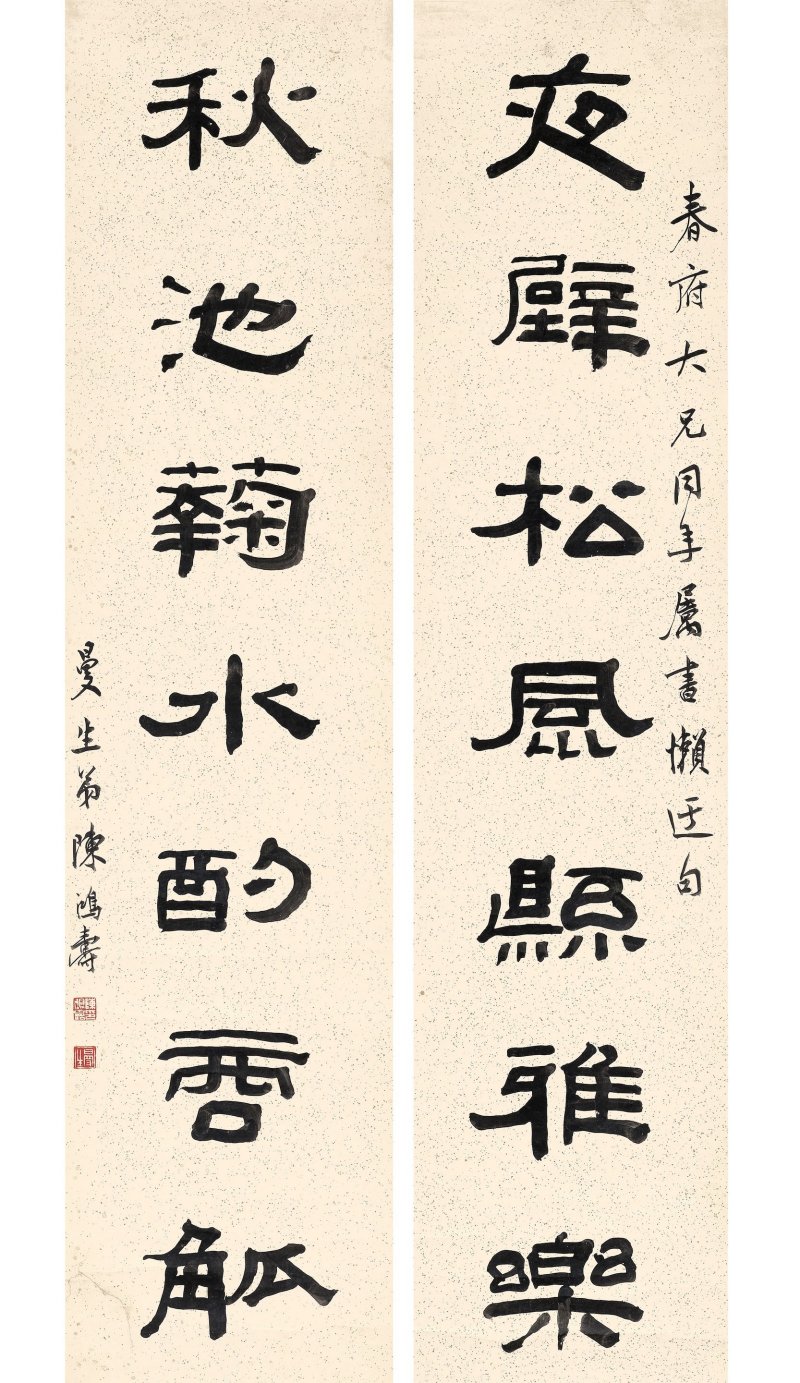 春府大兄同年屬書懶迂句
夜壁松風縣雅樂
秋池蘜水酌商觚
曼生弟陳鴻壽
曼生